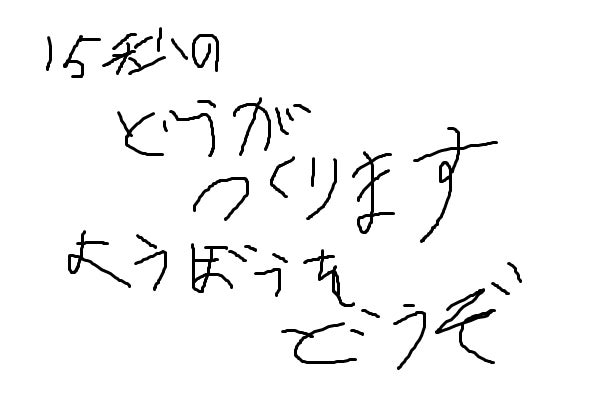 15秒の
どうが
つくります
ようぼうを
どうぞ